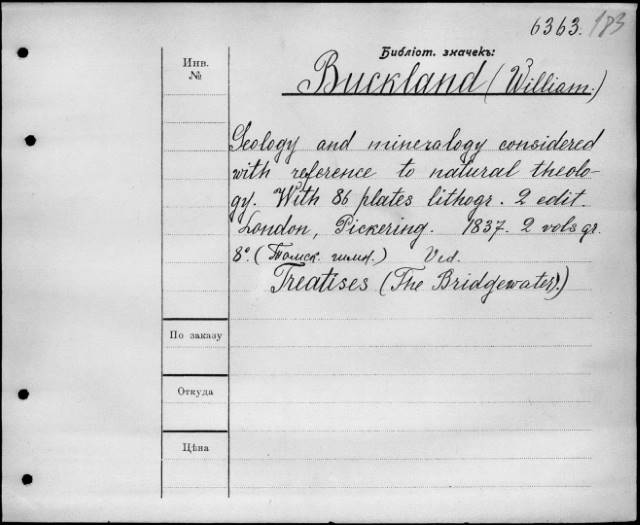 6363. 183
Библіот. значекъ:
Инв.
№
Buckland (William.)
Geology and mineralogy considered
with reference to natural theolo-
gy. With 86 plates lithogr. 2 edit.
London, Pickering. 1837. 2 vols gr.
8°. (Томск. гимн.) Ved.
Treatises (The Bridgewater.)
По заказу
Откуда
Цѣна